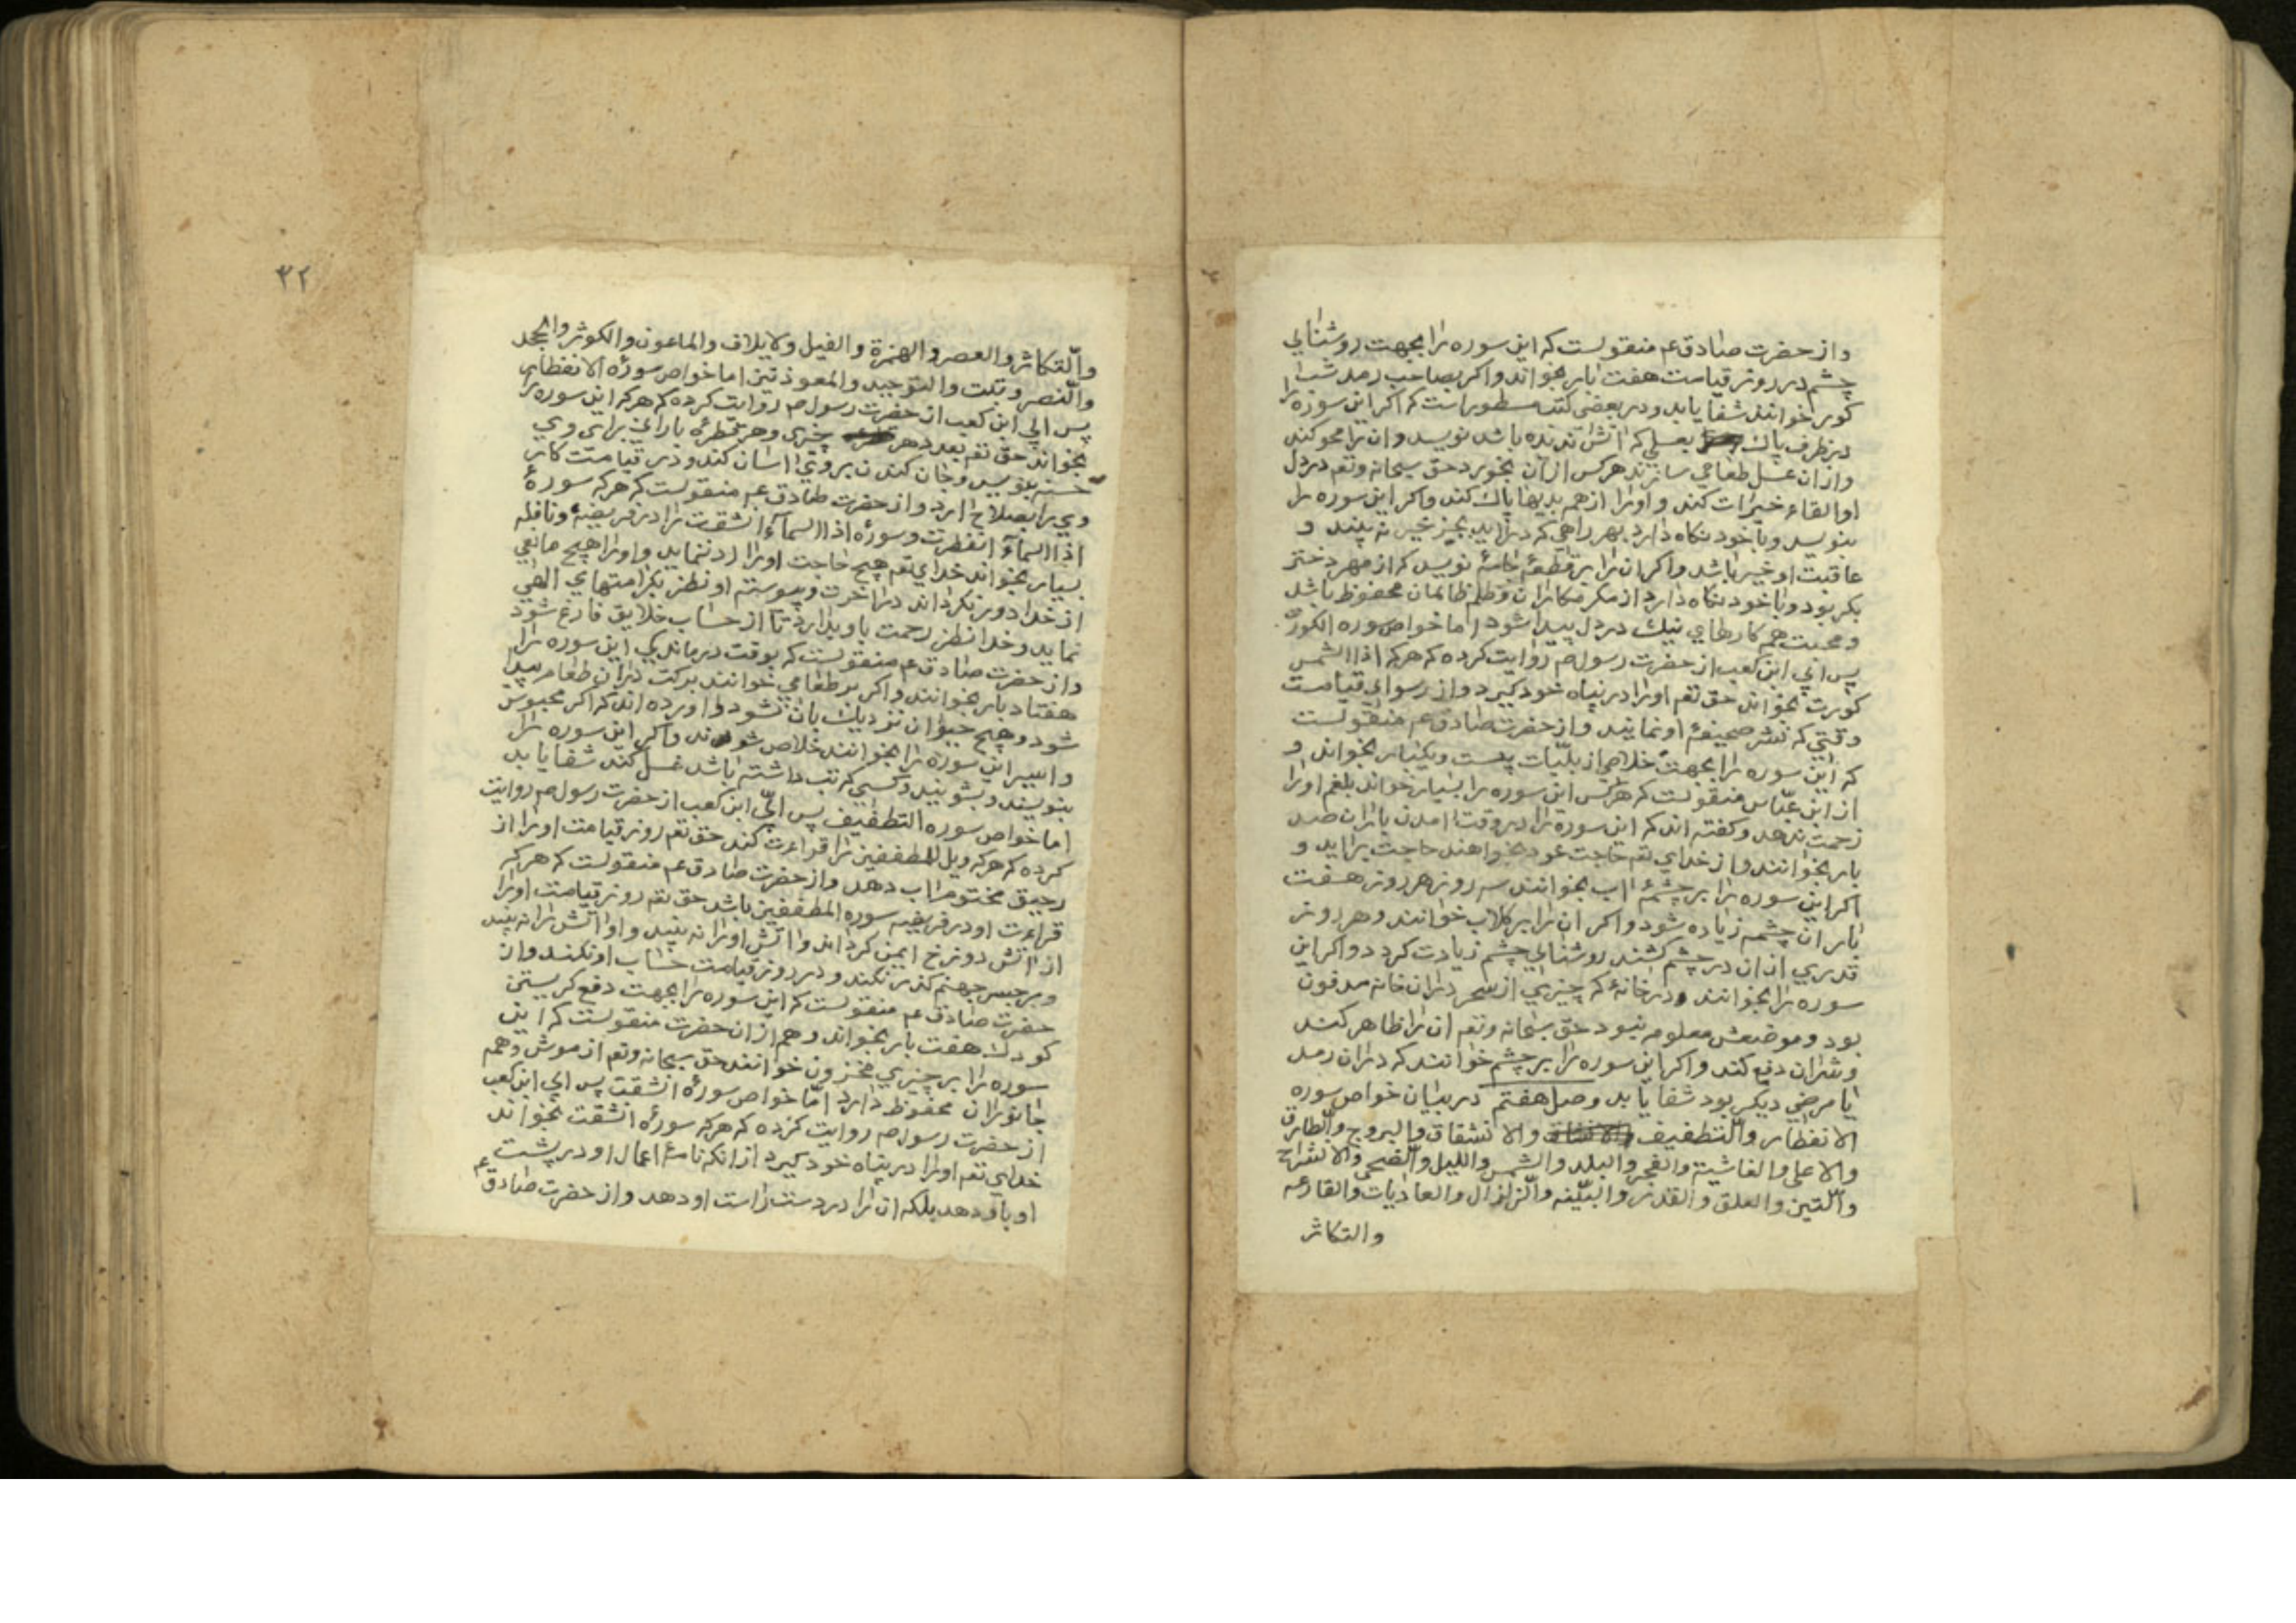 واز حضرت صادق عم منقولست که این سوره را بجهت روشنایی
چشم در روز قیامت هفت بار بخواند واکر بصاحب رمد شب
کور خوانند شفا یابد ودر بعضی کتب مسطور است که اکر این سوزه را
در ظرف پاک بعسلی که اتش ندیده باشد نویسد وان را محو کند
وازان عسل طعامی سازند هرکس ازان بخورد حق سبحانه وتعم در دل
او القاء خیرات کند واورا از همه بدیها پاک کند واکر این سوره را
بنویسد وبا خود نکاه دارد بهر راهی که دراید بجز خیر نه بیند و
عاقبت او خیر باشد واکر ان را بر قطعهٔ جامهٔ نویسد که از مهر دختر
بکر بود وبا خود نکاه دارد از مکر مکاران وظلم ظالمان محفوظ باشد
ومحبت هم کارهای نیک در دل پیدا شود اما خواص سوره الکورت
پس ابی ابن کعب از حضرت رسول صم روایت کرده که هرکه اذا الشمس
کورت بخواند حق تعم اورا در پناه خود کیرد واز رسوای قیامت
وقتی که نشر صحیفهٔ او نمایند واز حضرت صادق عم منقولست
که این سوره را بجهت خلاصی از بلیات بیست ویکبار بخواند و
از ابن عباس منقولست که هرکس این سوره را بسیار خواند بلغم اورا
زحمت ندهد وکفته اند که این سوره را در وقت امدن باران صد
بار بخوانند واز خدای تعم حاجت خود بخواهند حاجت براید و
اکر این سوره را بر چشمهٔ اب بخوانند سه روز هر روز هفت
بار ان چشمه زیاده شود واکر ان را بر کلاب خوانند وهر روز
قدری ازان در چشم کشند روشنایی چشم زیادت کردد واکر این
سوره را بخوانند ودر خانهٔ که چیزی از سحر دران خانه مدفون
بود وموضعش معلوم نبود حق سبحانه وتعم ان را ظاهر کند
وشران دفع کند واکر این سوره را بر چشم خوانند که دران رمد
یا مرضی دیکر بود شفا یابد وصل هفتم در بیان خواص سوره
الانفطار والتطفیف والانشقاق والبروج والطارق
والاعلی والغاشیة والفجر والبلد والشمس واللیل والضحی والانشراح
والتین والعلق والقدر والبینه والزلزال والعادیات والقارعه
والتکاثر
۳۲
والتکاثر والعصر والهمزة والفیل ولایلاف والماعون والکوثر والجحد
والنصر وتبت والتوحید والمعوذتین اما خواص سورهٔ الانفطار
پس ابی ابن کعب از حضرت رسول صم روایت کرده که هرکه این سوره را
بخواند حق تعم بعدد هر چیزی وهر قطرهٔ باران برای وی
حسنه بنویسد وجان کندن بر وی اسان کند ودر قیامت کار
وی را بصلاح ارد واز حضرت صادق عم منقولست که هرکه سورهٔ
اذا السمآء انفطرت وسورهٔ اذا السمآء انشقت را در فریضهٔ ونافله
بسیار بخواند خدای تعم هیچ حاجت اورا رد ننماید واورا هیچ مانعی
از خدا دور نکرداند در اخرت وپیوسته او نظر بکرامتهای الهی
نماید وخدا نظر رحمت باو بدارد تا از حساب خلایق فارغ شود
واز حضرت صادق عم منقولست که بوقت درماندیکی این سوره را
هفتاد بار بخوانند واکر بر طعامی خوانند برکت دران طعام پیدا
شود وهیچ حیوان نزدیک بان نشود واورده اند که اکر محبوس
واسیر این سوره را بخوانند خلاص شوند واکر این سوره را
بنویسند وبشویند وکسی که تب داشته باشد غسل کند شفا یابد
اما خواص سوره التطفیف پس ابی ابن کعب از حضرت رسول صم روایت
کرده که هرکه ویل للمطففین را قراءت کند حق تعم روز قیامت اورا از
رحیق مختوم اب دهد واز حضرت صادق عم منقولست که هرکه
قراءت او در فریضه سوره المطففین باشد حق تعم روز قیامت اورا
از اتش دوزخ ایمن کرداند واتش اورا نه بیند واو اتش را نه بیند
وبر جسر جهنم کذر نکند ودر روز قیامت حساب او نکند واز
حضرت صادق عم منقولست که این سوره را بجهت دفع کریستن
کودک هفت بار بخواند وهم ازان حضرت منقولست که این
سوره را بر چیزی مخزون خوانند حق سبحانه وتعم از موش وهمه
جانوران محفوظ دارد اما خواص سورهٔ انشقت پس ابی ابن کعب
از حضرت رسول صم روایت کرده که هرکه سورهٔ انشقت بخواند
خدای تعم اورا در پناه خود کیرد از انکه نامهٔ اعمال او در پشت
او باو دهد بلکه ان را در دست راست او دهد واز حضرت صادق عم